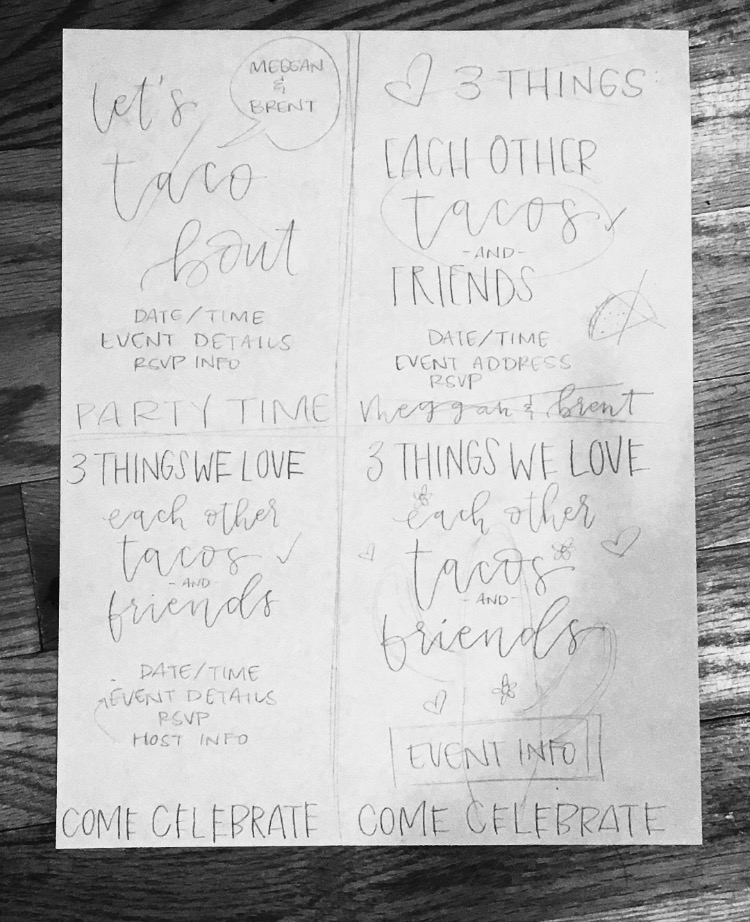 let's
MEGGAN
&
BRENT
taco
bout
DATE/TIME
EVENT DETAILS
RSVP INFO
PARTY TIME
3 THINGS:
EACH OTHER
tacos
-AND-
FRIENDS
DATE/TIME
EVENT ADDRESS
RSVP
meggan & brent
3 THINGS WE LOVE
each other
tacos
-AND-
friends
DATE/TIME
EVENT DETAILS
RSVP
HOST INFO
COME CELEBRATE
3 THINGS WE LOVE
each other
tacos
-AND-
friends
EVENT INFO
COME CELEBRATE